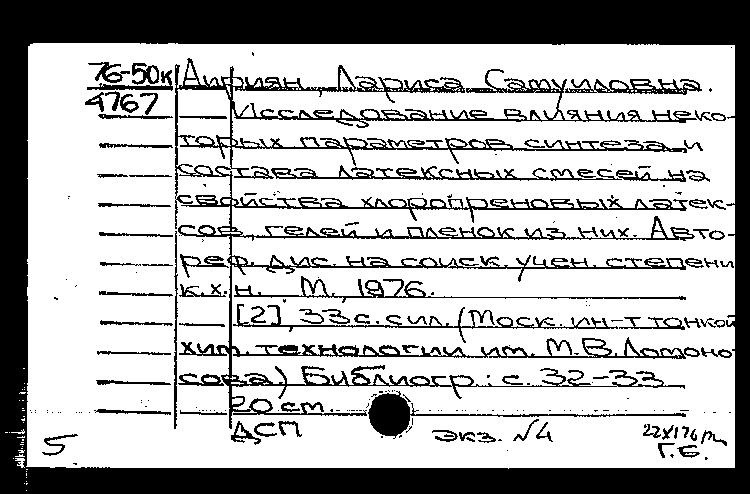 76-50к Аириян, Лариса Самуиловна.
4767 Исследование влияния неко-
торых параметров синтеза и
состава латексных смесей на
свойства хлоропреновых латек-
сов, гелей и пленок из них. Авто-
реф. дис. на соиск. учен. степени
к.х.н. М., 1976.
[2], 33 с. с ил. (Моск. ин-т тонкой
хим. технологии им. М.В. Ломоно-
сова) Библиогр.: с. 32-33
20 см.
ДСП экз. №4
5 Г.Б.